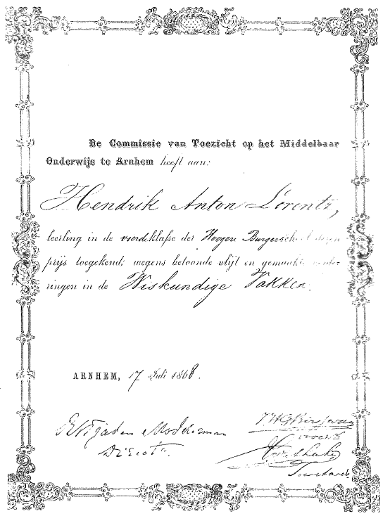 De Commissie van Toezicht op het Middelbaar
Onderwijs te Arnhem heeft aan:
Hendrik Anton Lorentz,
leerling in de vierde klasse der Hoogere Burgerschool dezen
prijs toegekend, wegens betoonde vlijt en gemaakte vorde-
ringen in de Wiskundige Vakken.
ARNHEM, 17 Juli 1868.
Directr.